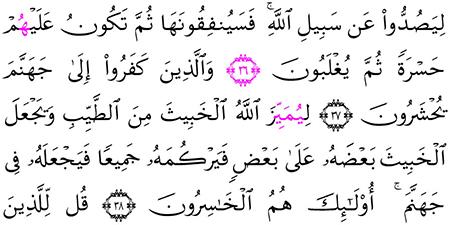 لِيَصُدُّواْ عَن سَبِيلِ ٱللَّهِۚ فَسَيُنفِقُونَهَا ثُمَّ تَكُونُ عَلَيۡهِمۡ
حَسۡرَةٗ ثُمَّ يُغۡلَبُونَ ٣٦ وَٱلَّذِينَ كَفَرُوٓاْ إِلَىٰ جَهَنَّمَ
يُحۡشَرُونَ ٣٧ لِيُمَيِّزَ ٱللَّهُ ٱلۡخَبِيثَ مِنَ ٱلطَّيِّبِ وَيَجۡعَلَ
ٱلۡخَبِيثَ بَعۡضَهُۥ عَلَىٰ بَعۡضٖ فَيَرۡكُمَهُۥ جَمِيعٗا فَيَجۡعَلَهُۥ فِي
جَهَنَّمَۚ أُوْلَٰٓئِكَ هُمُ ٱلۡخَٰسِرُونَ ٣٨ قُل لِّلَّذِينَ